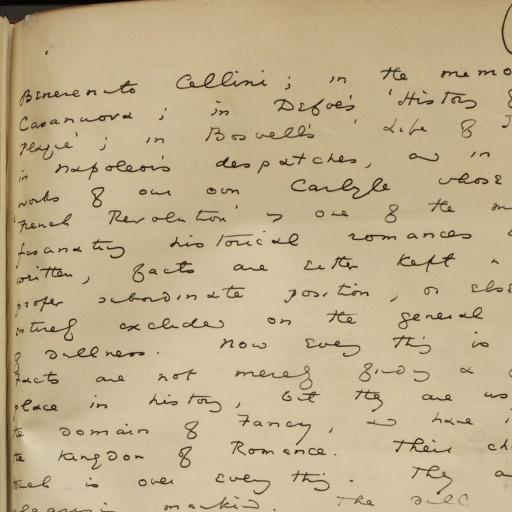 Benvenuto Cellini; in the memo
Casanuova; in Defoe's 'History of
Plague'; in Boswell's Life of J
in Napoleon's despatches, and in
works of our own Carlyle whose
'French Revolution' is one of the m
fascinating historical romances
written, facts are either kept
proper subordinate position, or else
entirely excluded on the general
of dullness. Now everything is
Facts are not merely finding a
place in history, but they are us
the domain of Fancy, and have i
the kingdom of Romance. Their ch
touch is over everything. They a
mankind. The dull